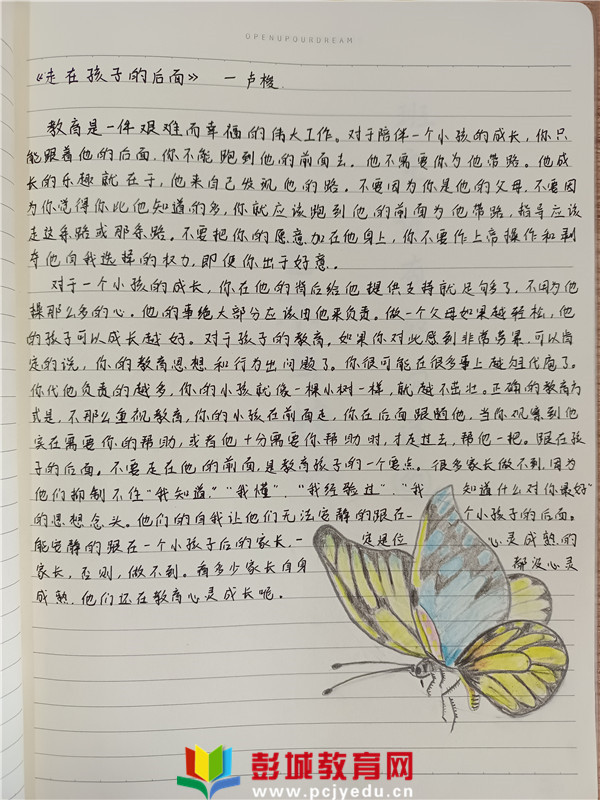 OPENUPOURDREAM
《走在孩子的后面》 —卢梭.
教育是一件艰难而幸福的伟大工作。对于陪伴一个小孩的成长,你只
能跟着他的后面,你不能跑到他的前面去。他不需要你为他带路。他成
长的乐趣就在于,他来自己发现他的路。不要因为你是他的父母,不要因
为你觉得你比他知道的多,你就应该跑到他的前面为他带路,指导应该
走这条路或那条路。不要把你的愿意加在他身上,你不要作上帝操作和剥
夺他自我选择的权力,即使你出于好意。
对于一个小孩的成长,你在他的背后给他提供支持就足够了,不因为他
操那么多的心。他的事绝大部分应该由他来负责。做一个父母如果越轻松,他
的孩子可以成长越好。对于孩子的教育,如果你对此感到非常劳累,可以肯
定的说,你的教育思想和行为出问题了。你很可能在很多事上越俎代庖了。
你代他负责的越多,你的小孩就像一棵小树一样,就越不茁壮。正确的教育方
式是,不那么重视教育,你的小孩在前面走,你在后面跟随他,当你观察到他
实在需要你的帮助,或者他十分需要你帮助时,才走过去,帮他一把。跟在孩
子的后面。不要走在他的前面,是教育孩子的一个要点。很多家长做不到,因为
他们抑制不住“我知道,”“我懂”,“我经验过”,“我 知道什么对你最好”
的思想念头。他们的自我让他们无法安静的跟在一 个小孩子的后面。
能安静的跟在一个小孩子后的家长,一 定是位 心灵成熟的
家长,否则,做不到。有多少家长自身 都没心灵
成熟,他们还在教育心灵成长呢。
彭城教育网
www.pcjyedu.cn